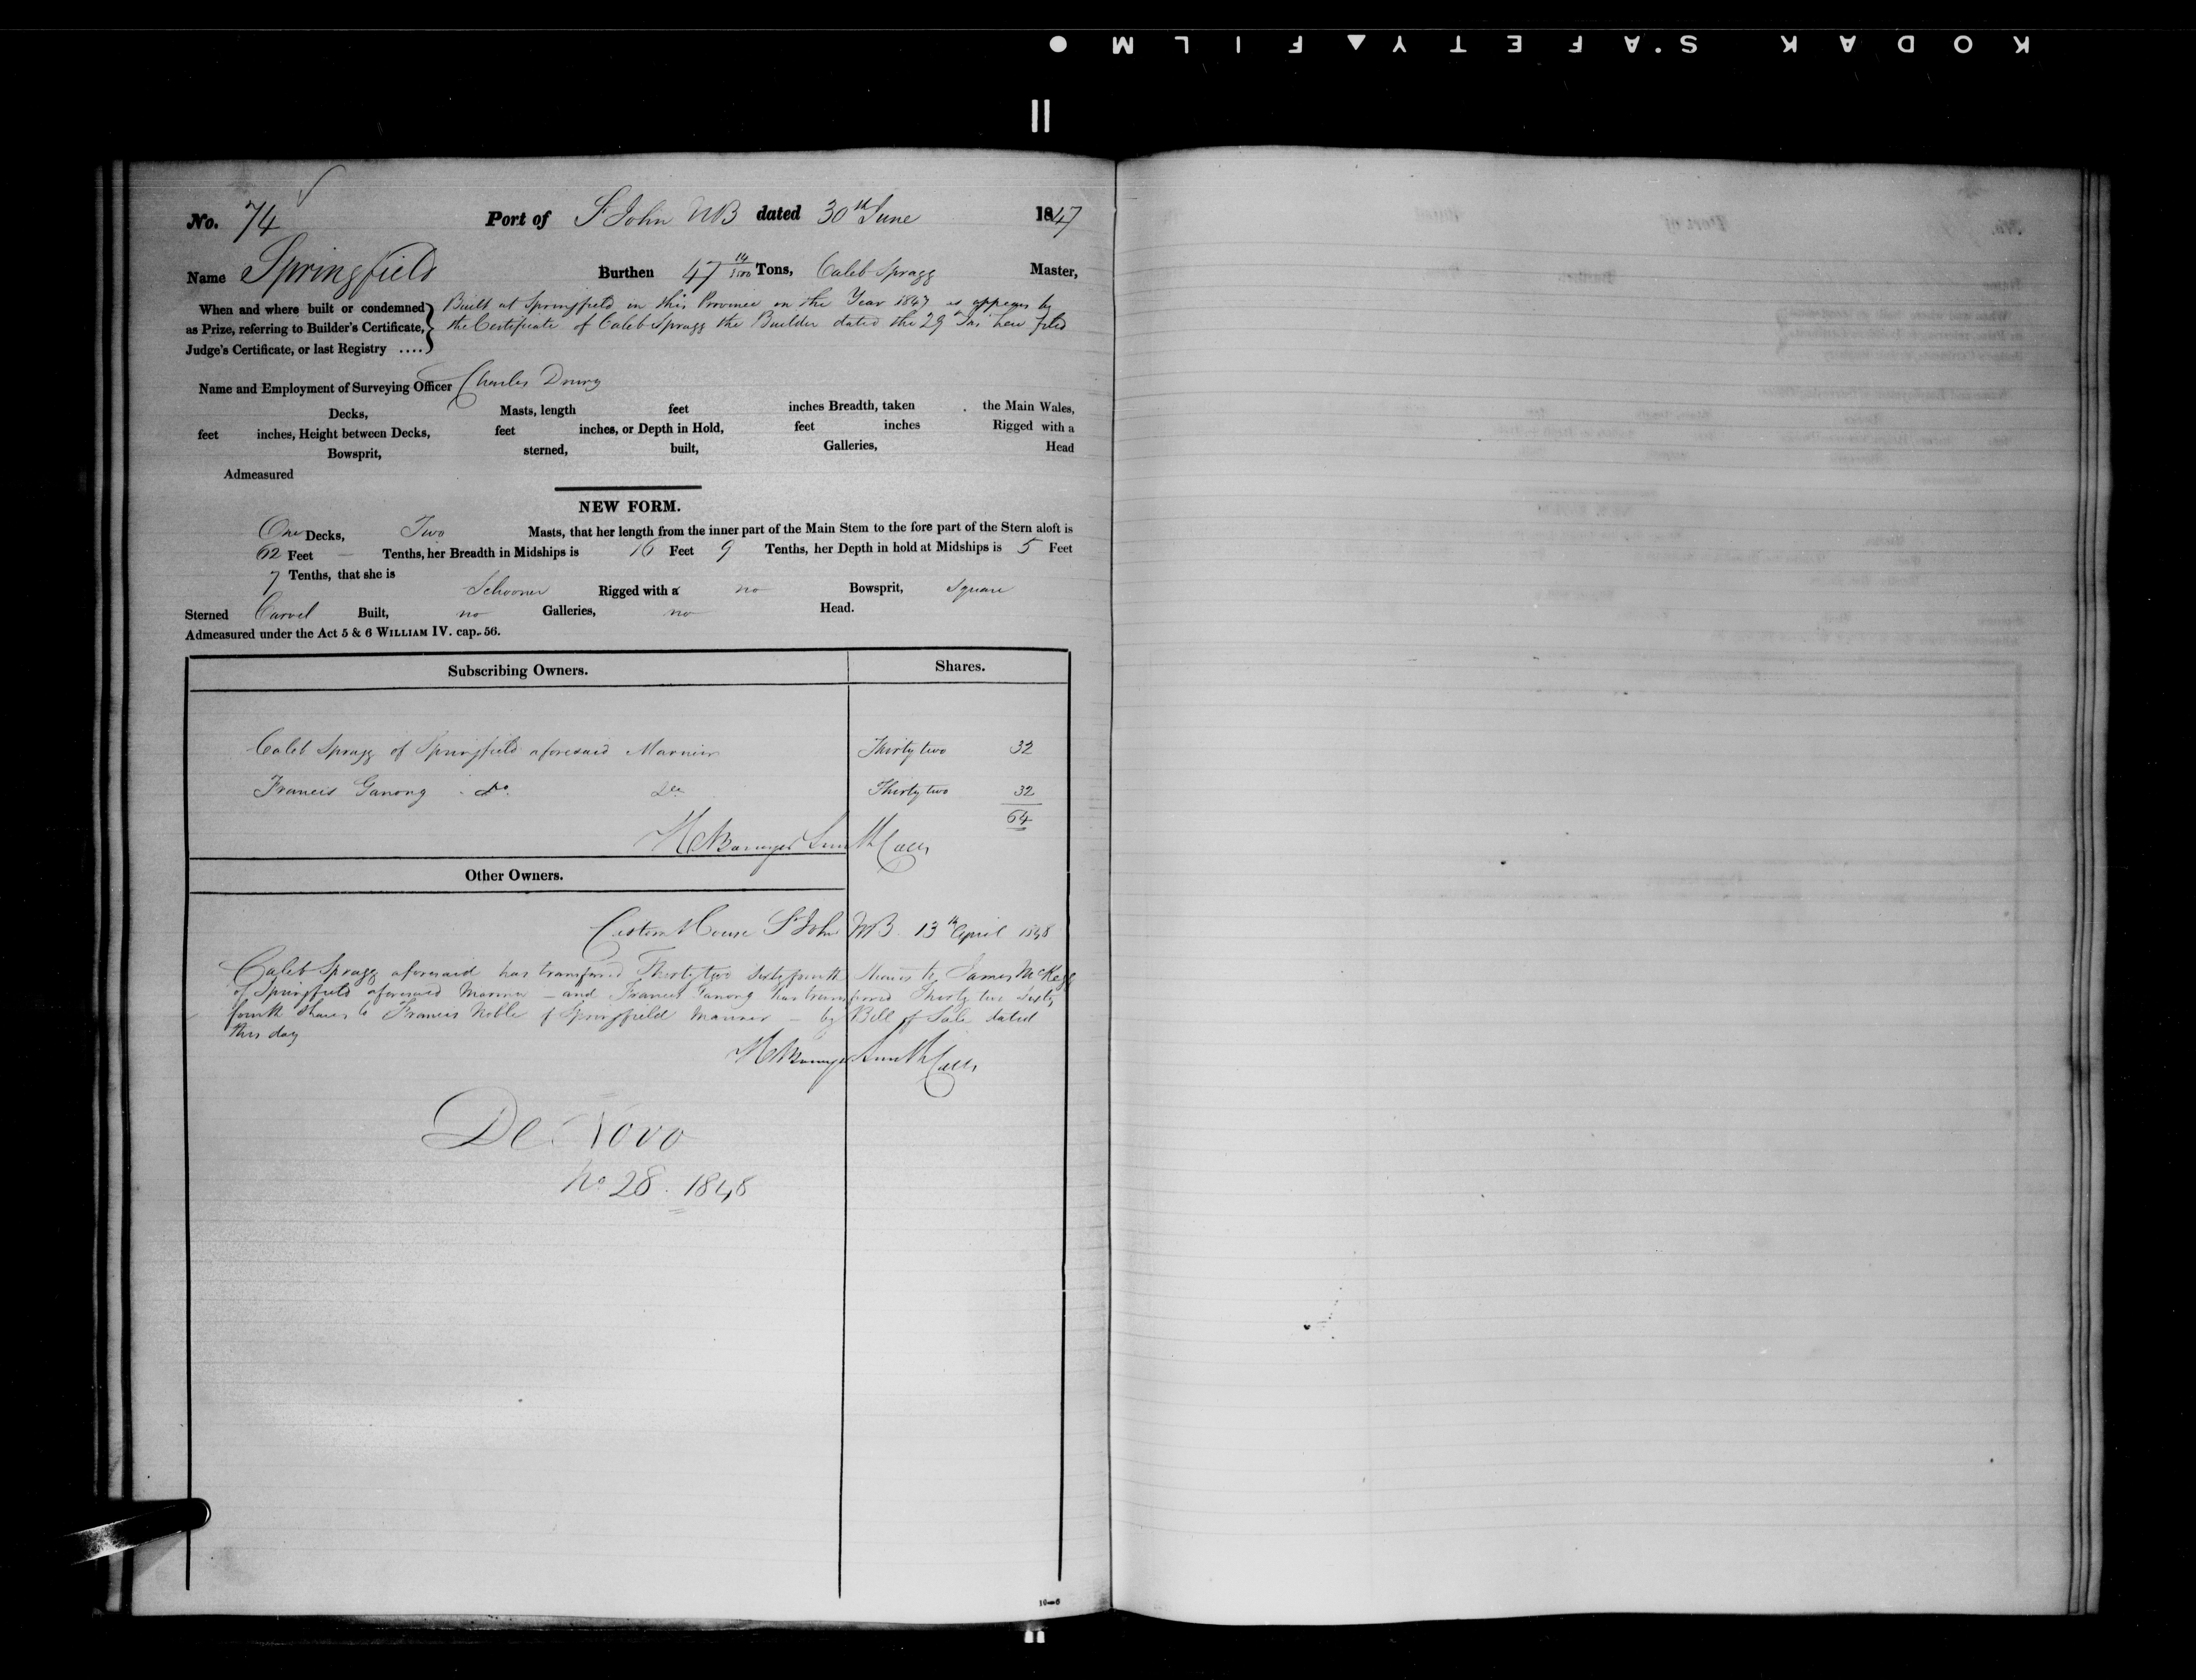 KODAK SAFETY FILM
No. 74 Port of St John NB dated 30th June 1847
Name Springfield Burthen 47 14/3500 Tons, Caleb Spragg Master,
When and where built or condemned as Prize, referring to Builder's Certificate, Judge's Certificate, or last Registry ....
Built at Springfield in this Province in the Year 1847 as appears by
the Certificate of Caleb Spragg the Builder dated the 29 Ins here filed
Name and Employment of Surveying Officer Charles Drury
Decks, Masts, length feet inches Breadth, taken the Main Wales,
feet inches, Height between Decks, feet inches, or Depth in Hold, feet inches Rigged with a
Bowsprit, sterned, built, Galleries, Head
Admeasured
NEW FORM.
One Decks, Two Masts, that her length from the inner part of the Main Stem to the fore part of the Stern aloft is
62 Feet — Tenths, her Breadth in Midships is 16 Feet 9 Tenths, her Depth in hold at Midships is 5 Feet
7 Tenths, that she is
Schooner Rigged with a no Bowsprit, Square
Sterned Carvel Built, no Galleries, no Head.
Admeasured under the Act 5 & 6 WILLIAM IV. cap. 56.
Subscribing Owners. Shares.
Caleb Spragg of Springfield aforesaid Mariner Thirty two 32
Francis Ganong do. Do Thirty two 32
64
Smith Coll
Other Owners.
Custom House St John NB 13th April 1848
Caleb Spragg aforesaid has transferred Thirty two Sixty fourth Shares to James McKegg
of Springfield aforesaid Mariner — and Francis Ganong has transferred Thirty two Sixty
fourth Shares to Francis Noble of Springfield Mariner — by Bill of Sale dated
this day
Smith Coll
De Novo
No 28. 1848